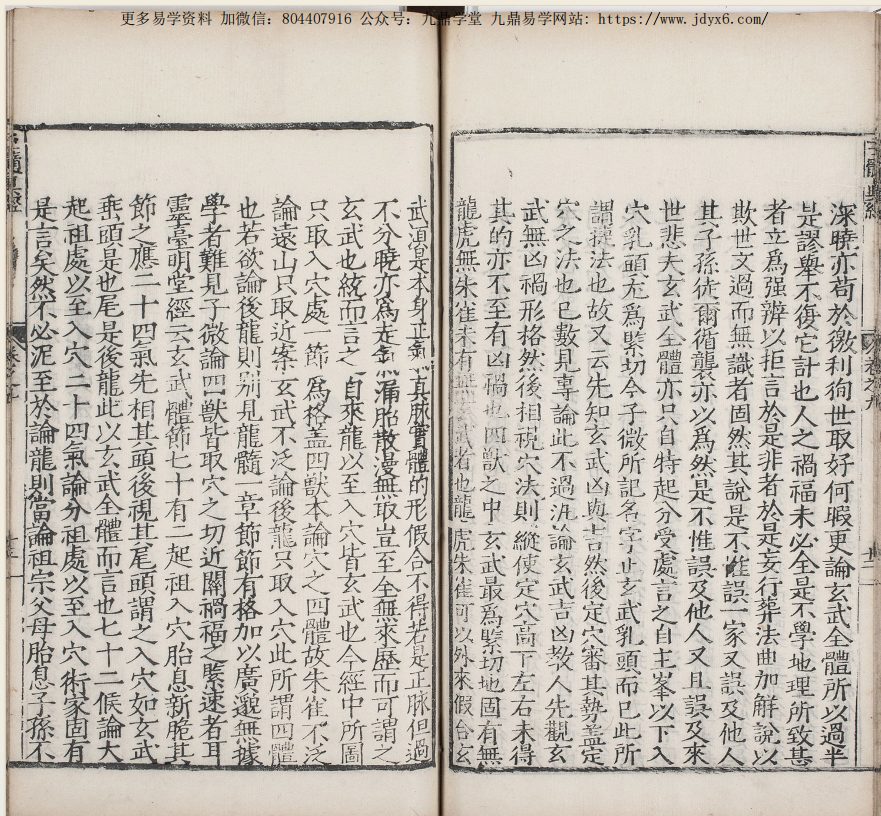 更多易学资料 加微信：804407916 公众号：九鼎学堂 九鼎易学网站：https://www.jdyx6.com/
深曉亦苟於徼利狥世取好何暇更論玄武全體所以過半
是謬舉不復它計也人之禍福未必全是不學地理所致其
者立為强辨以拒言於是非者於是妄行葬法曲加解說以
欺世文過而無識者固然其說是不惟誤一家又誤及他人
其子孫徒爾循襲亦以為然是不惟誤及他人又且誤及來
世悲夫玄武全體亦只自特起分受處言之自主峯以下入
穴乳頭充為緊切今子微所記名字止玄武乳頭而已此所
謂提法也故又云先知玄武凶與吉然後定穴審其勢蓋定
穴之法也已數見專論此不過汎論玄武吉凶教人先觀玄
武無凶禍形格然後相視穴法則縱使定穴高下左右未得
其的亦不至有凶禍也四獸之中玄武最為緊切地固有無
龍虎無朱雀未有無玄武者也龍虎朱雀可以外來假合玄
武須是本身正氣真脉實體的形假合不得若是正脉但過
不分曉亦為走氣漏胎散漫無取豈至全無來歷而可謂之
玄武也統而言之自來龍以至入穴皆玄武也今經中所圖
只取入穴處一節為格蓋四獸本論穴之四體故朱雀不泛
論遠山只取近案玄武不泛論後龍只取入穴此所謂四體
也若欲論後龍則別見龍髓一章節節有格加以廣邈無據
學者難見子微論四獸皆取穴之切近關禍福之緊速者耳
靈臺明堂經云玄武體節七十有二起祖入穴胎息新脆其
節之應二十四氣先相其頭後視其尾頭謂之入穴如玄武
垂頭是也尾是後龍此以玄武全體而言也七十二候論大
起祖處以至入穴二十四氣論分祖處以至入穴術家固有
是言矣然不必泥至於論龍則當論祖宗父母胎息子孫不